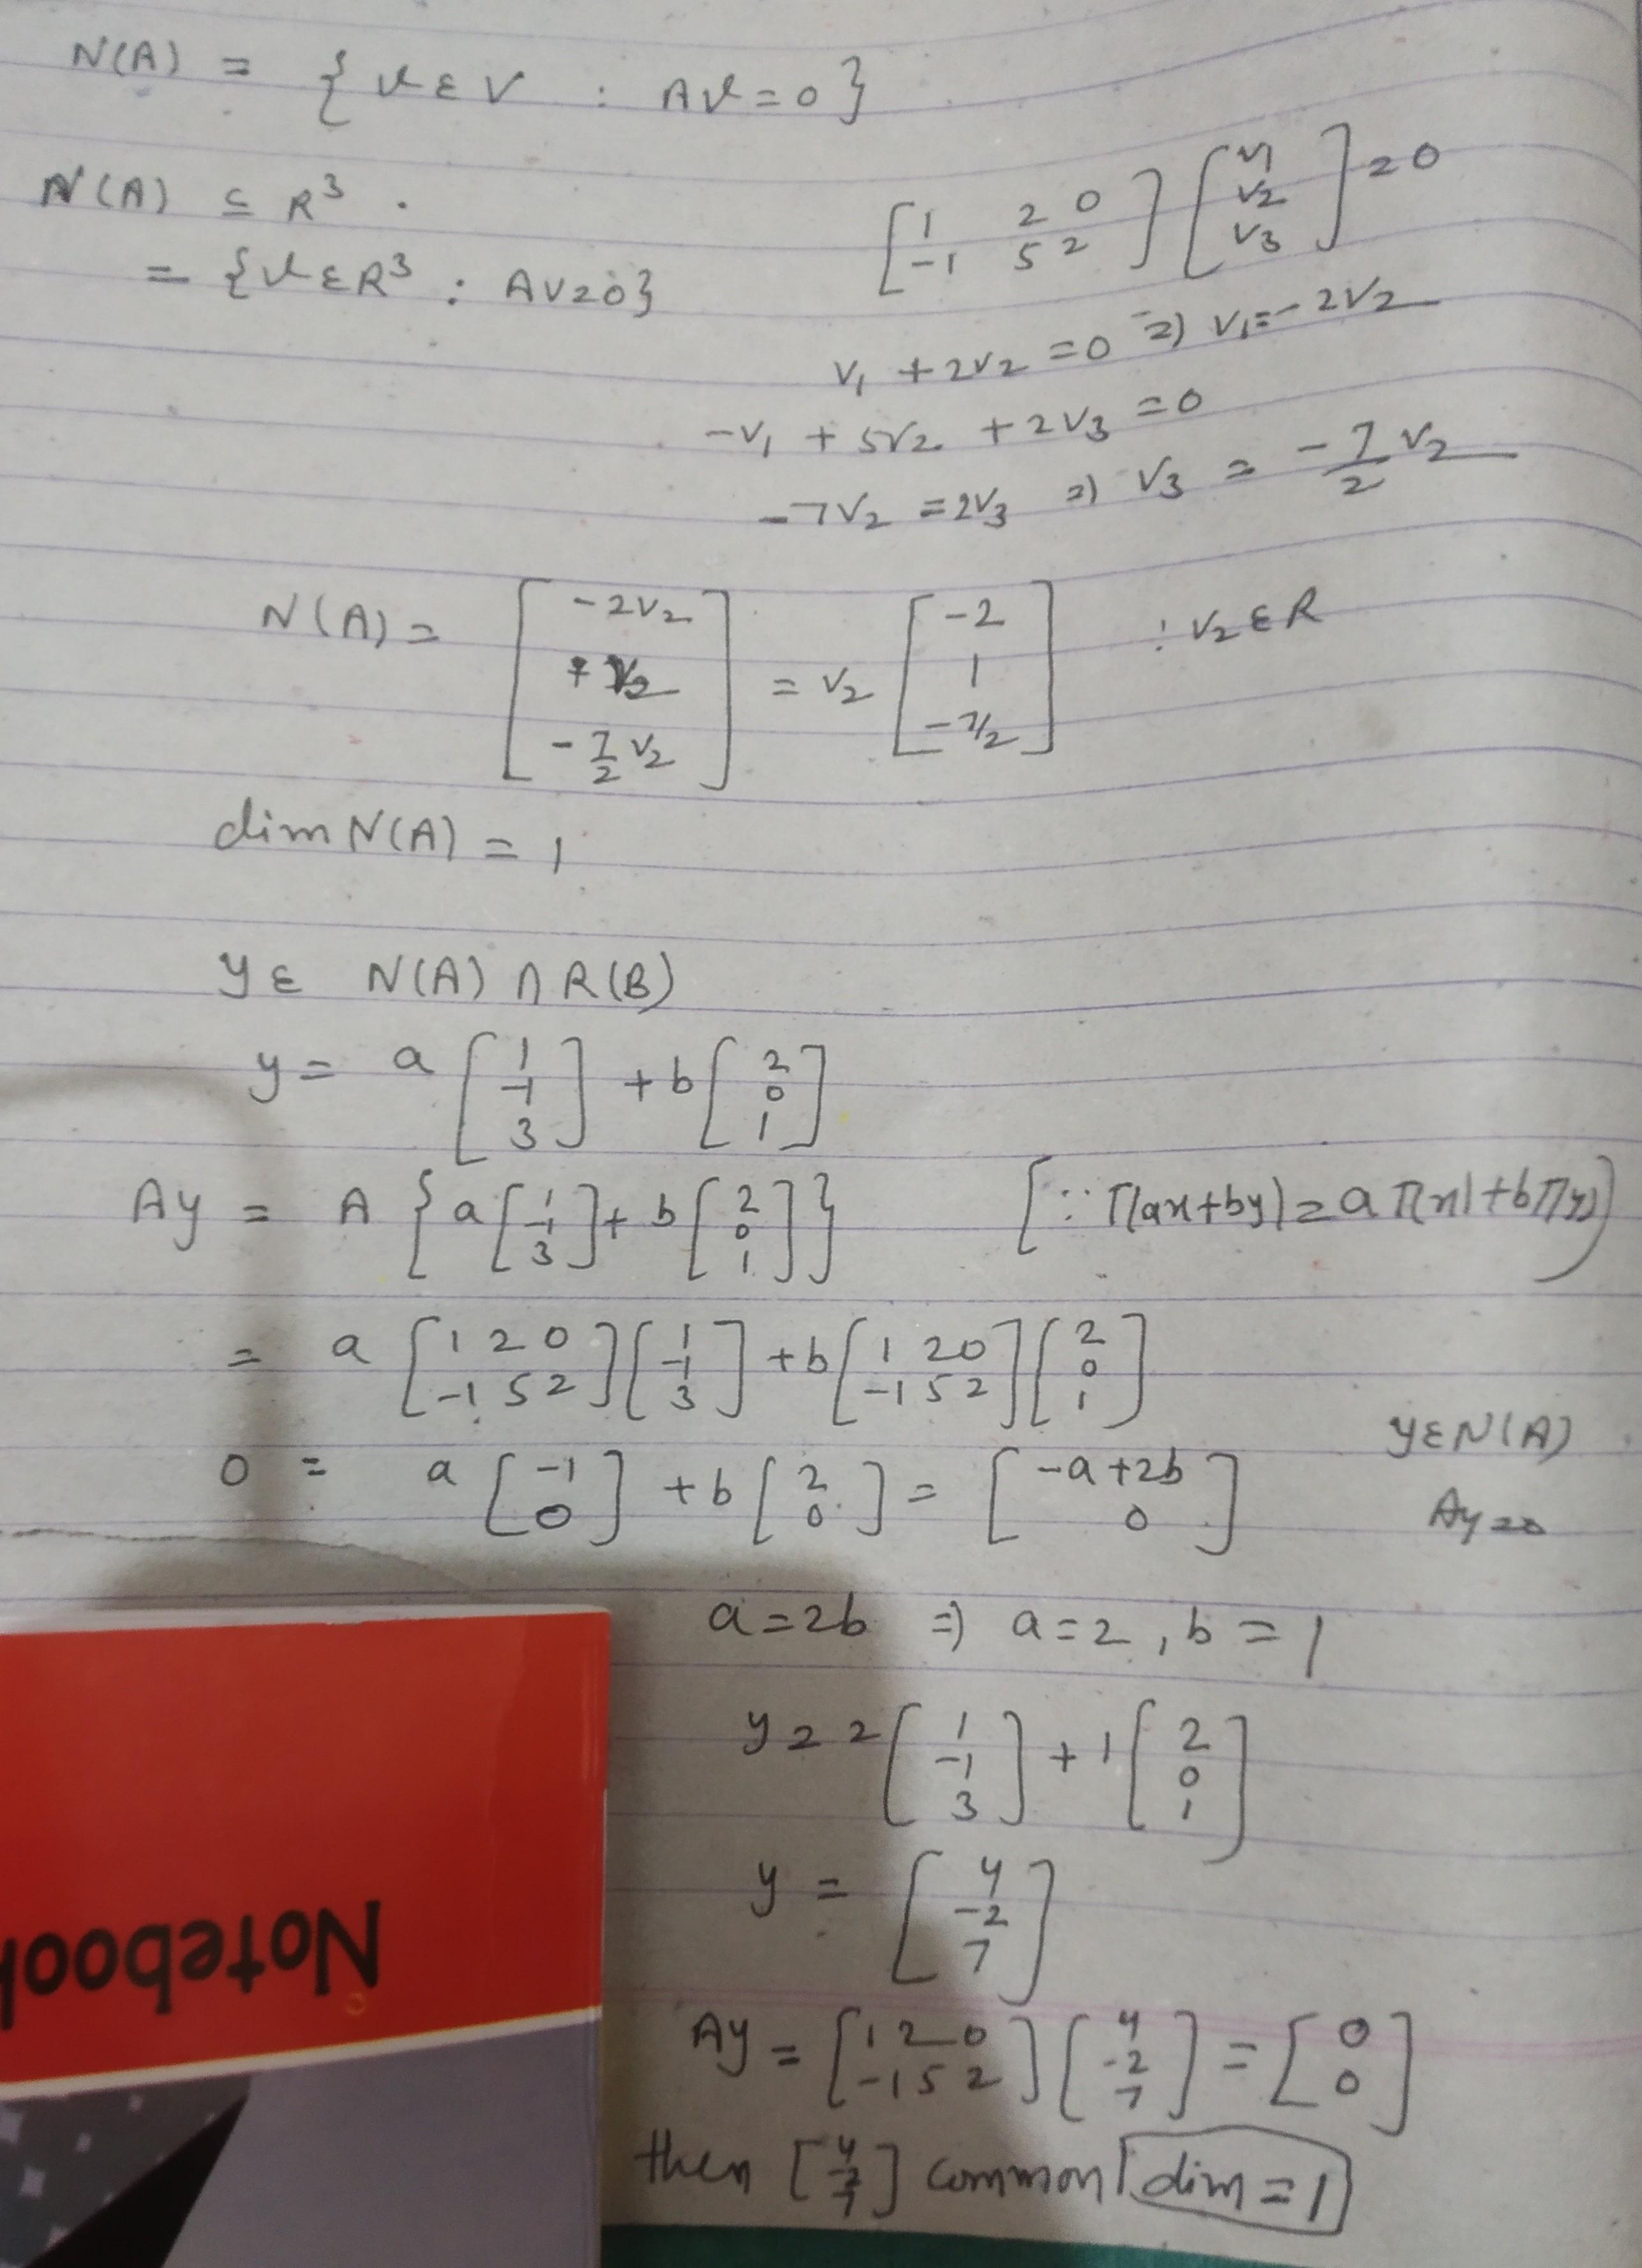 N(A) = { v ε V : Av = 0 }
N(A) ⊆ R³ .
= { v ε R³ : Av = 0 }
[1 2 0; -1 5 2] [v1; v2; v3] = 0
v1 + 2v2 = 0 ⇒ v1 = -2v2
-v1 + 5v2 + 2v3 = 0
-7v2 = 2v3 ⇒ v3 = -7/2 v2
N(A) = [-2v2; +v2; -7/2 v2] = v2 [-2; 1; -7/2] : v2 ε R
dim N(A) = 1
y ε N(A) ∩ R(B)
y = a [1; -1; 3] + b [2; 0; 1]
Ay = A { a [1; -1; 3] + b [2; 0; 1] } [∵ T(ax+by) = a T(x) + b T(y)]
= a [1 2 0; -1 5 2] [1; -1; 3] + b [1 2 0; -1 5 2] [2; 0; 1]
0 = a [-1; 0] + b [2; 0] = [-a+2b; 0]
y ε N(A)
Ay = 0
a = 2b ⇒ a = 2, b = 1
y = 2 [1; -1; 3] + 1 [2; 0; 1]
y = [4; -2; 7]
Ay = [1 2 0; -1 5 2] [4; -2; 7] = [0; 0]
then [4; -2; 7] common dim = 1
Notebook